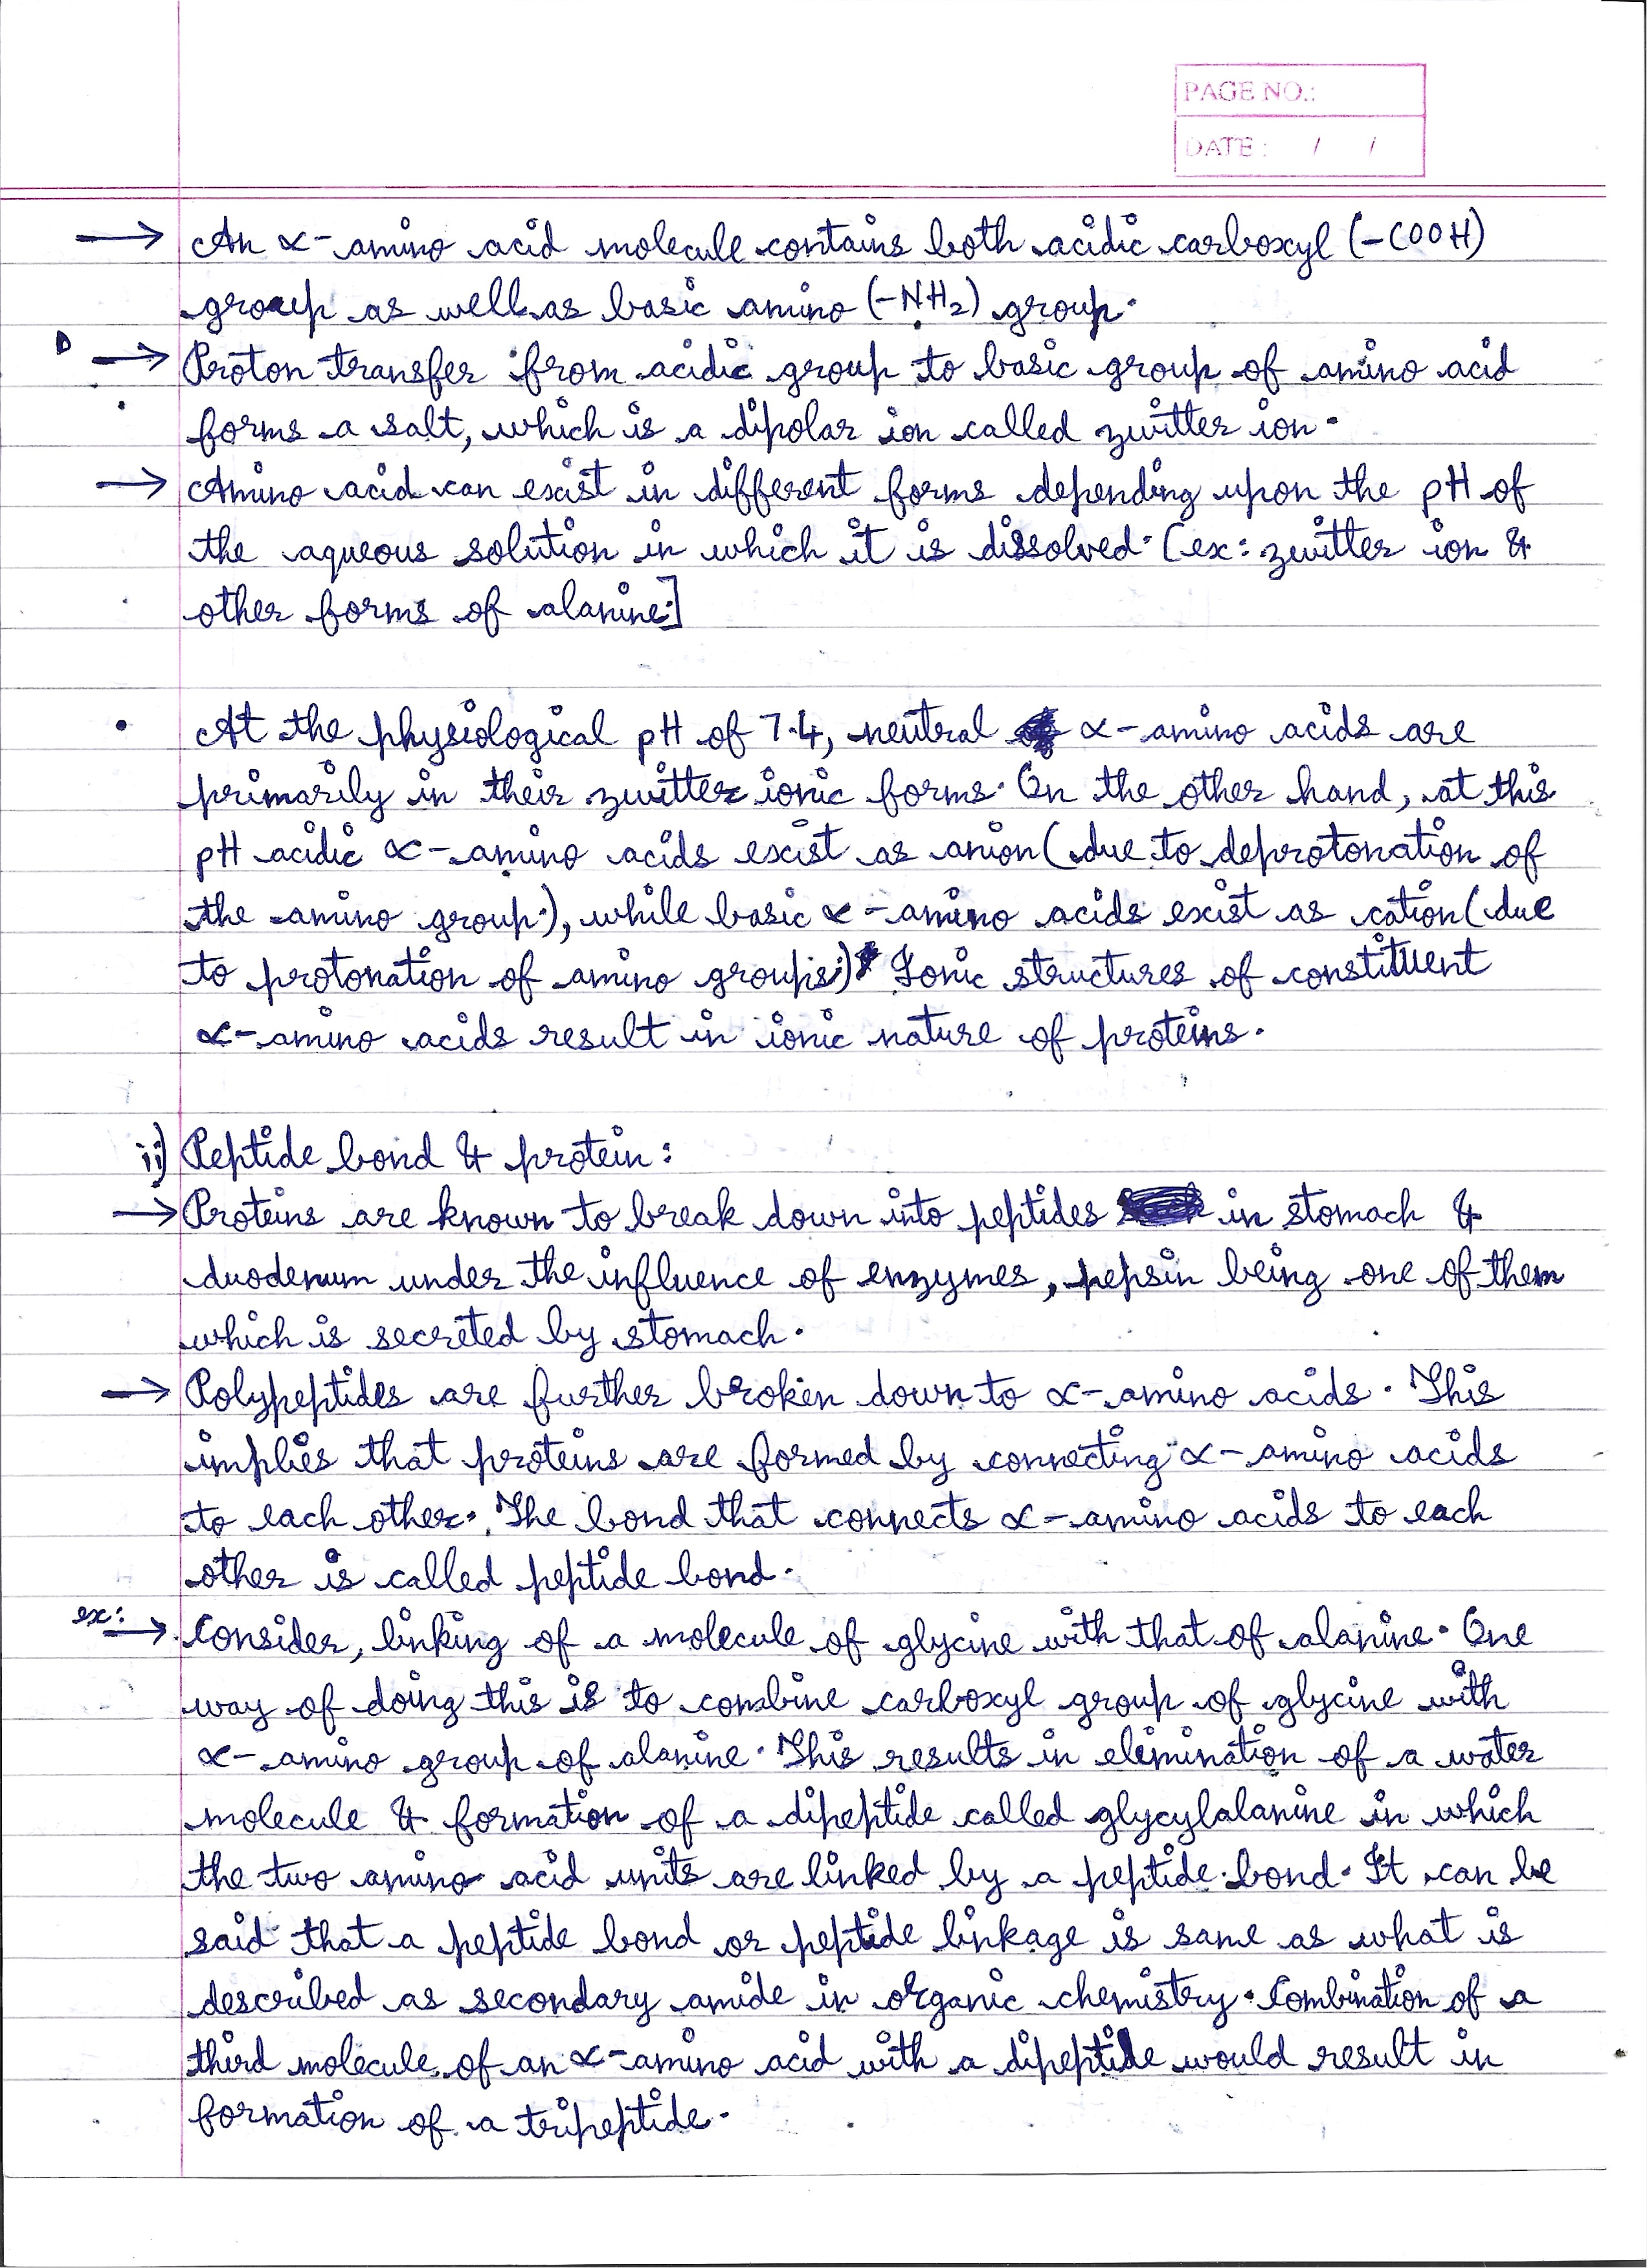 PAGE NO.:
DATE: / /
→ An α-amino acid molecule contains both acidic carboxyl (-COOH)
group as well as basic amino (-NH₂) group.
→ Proton transfer from acidic group to basic group of amino acid
forms a salt, which is a dipolar ion called zwitter ion.
→ Amino acid can exist in different forms depending upon the pH of
the aqueous solution in which it is dissolved. [ex: zwitter ion &
other forms of alanine.]
• At the physiological pH of 7.4, neutral α-amino acids are
primarily in their zwitter ionic forms. On the other hand, at this
pH acidic α-amino acids exist as anion (due to deprotonation of
the amino group.), while basic α-amino acids exist as cation (due
to protonation of amino groups.) Ionic structures of constituent
α-amino acids result in ionic nature of proteins.
ii) Peptide bond & protein:
→ Proteins are known to break down into peptides in stomach &
duodenum under the influence of enzymes, pepsin being one of them
which is secreted by stomach.
→ Polypeptides are further broken down to α-amino acids. This
implies that proteins are formed by connecting α-amino acids
to each other. The bond that connects α-amino acids to each
other is called peptide bond.
ex: → Consider, linking of a molecule of glycine with that of alanine. One
way of doing this is to combine carboxyl group of glycine with
α-amino group of alanine. This results in elimination of a water
molecule & formation of a dipeptide called glycylalanine in which
the two amino acid units are linked by a peptide bond. It can be
said that a peptide bond or peptide linkage is same as what is
described as secondary amide in organic chemistry. Combination of a
third molecule of an α-amino acid with a dipeptide would result in
formation of a tripeptide.